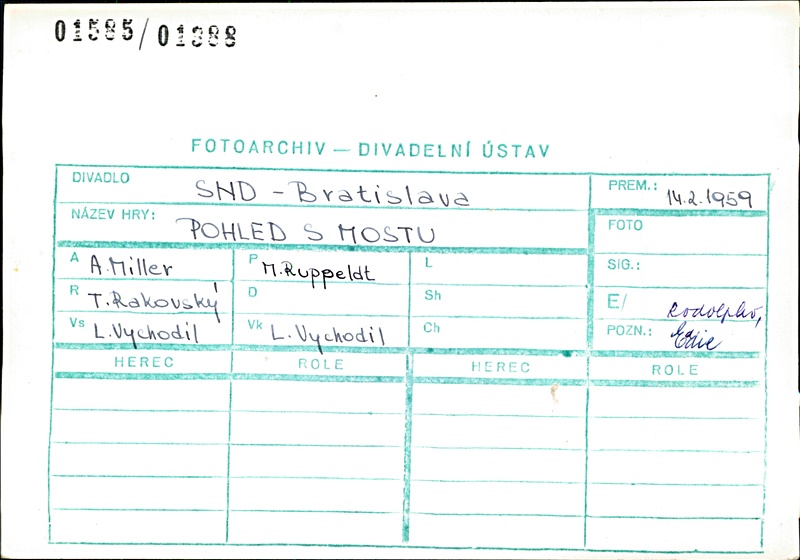 01585/01388
FOTOARCHIV — DIVADELNÍ ÚSTAV
DIVADLO SND - Bratislava
PREM.: 14.2.1959
NÁZEV HRY: POHLED S MOSTU
FOTO
A A. Miller P M. Ruppeldt L
SIG.:
R T. Rakovský D Sh
E/ Rodolpho,
Vs L. Vychodil Vk L. Vychodil Ch
POZN.: Edie
HEREC ROLE HEREC ROLE